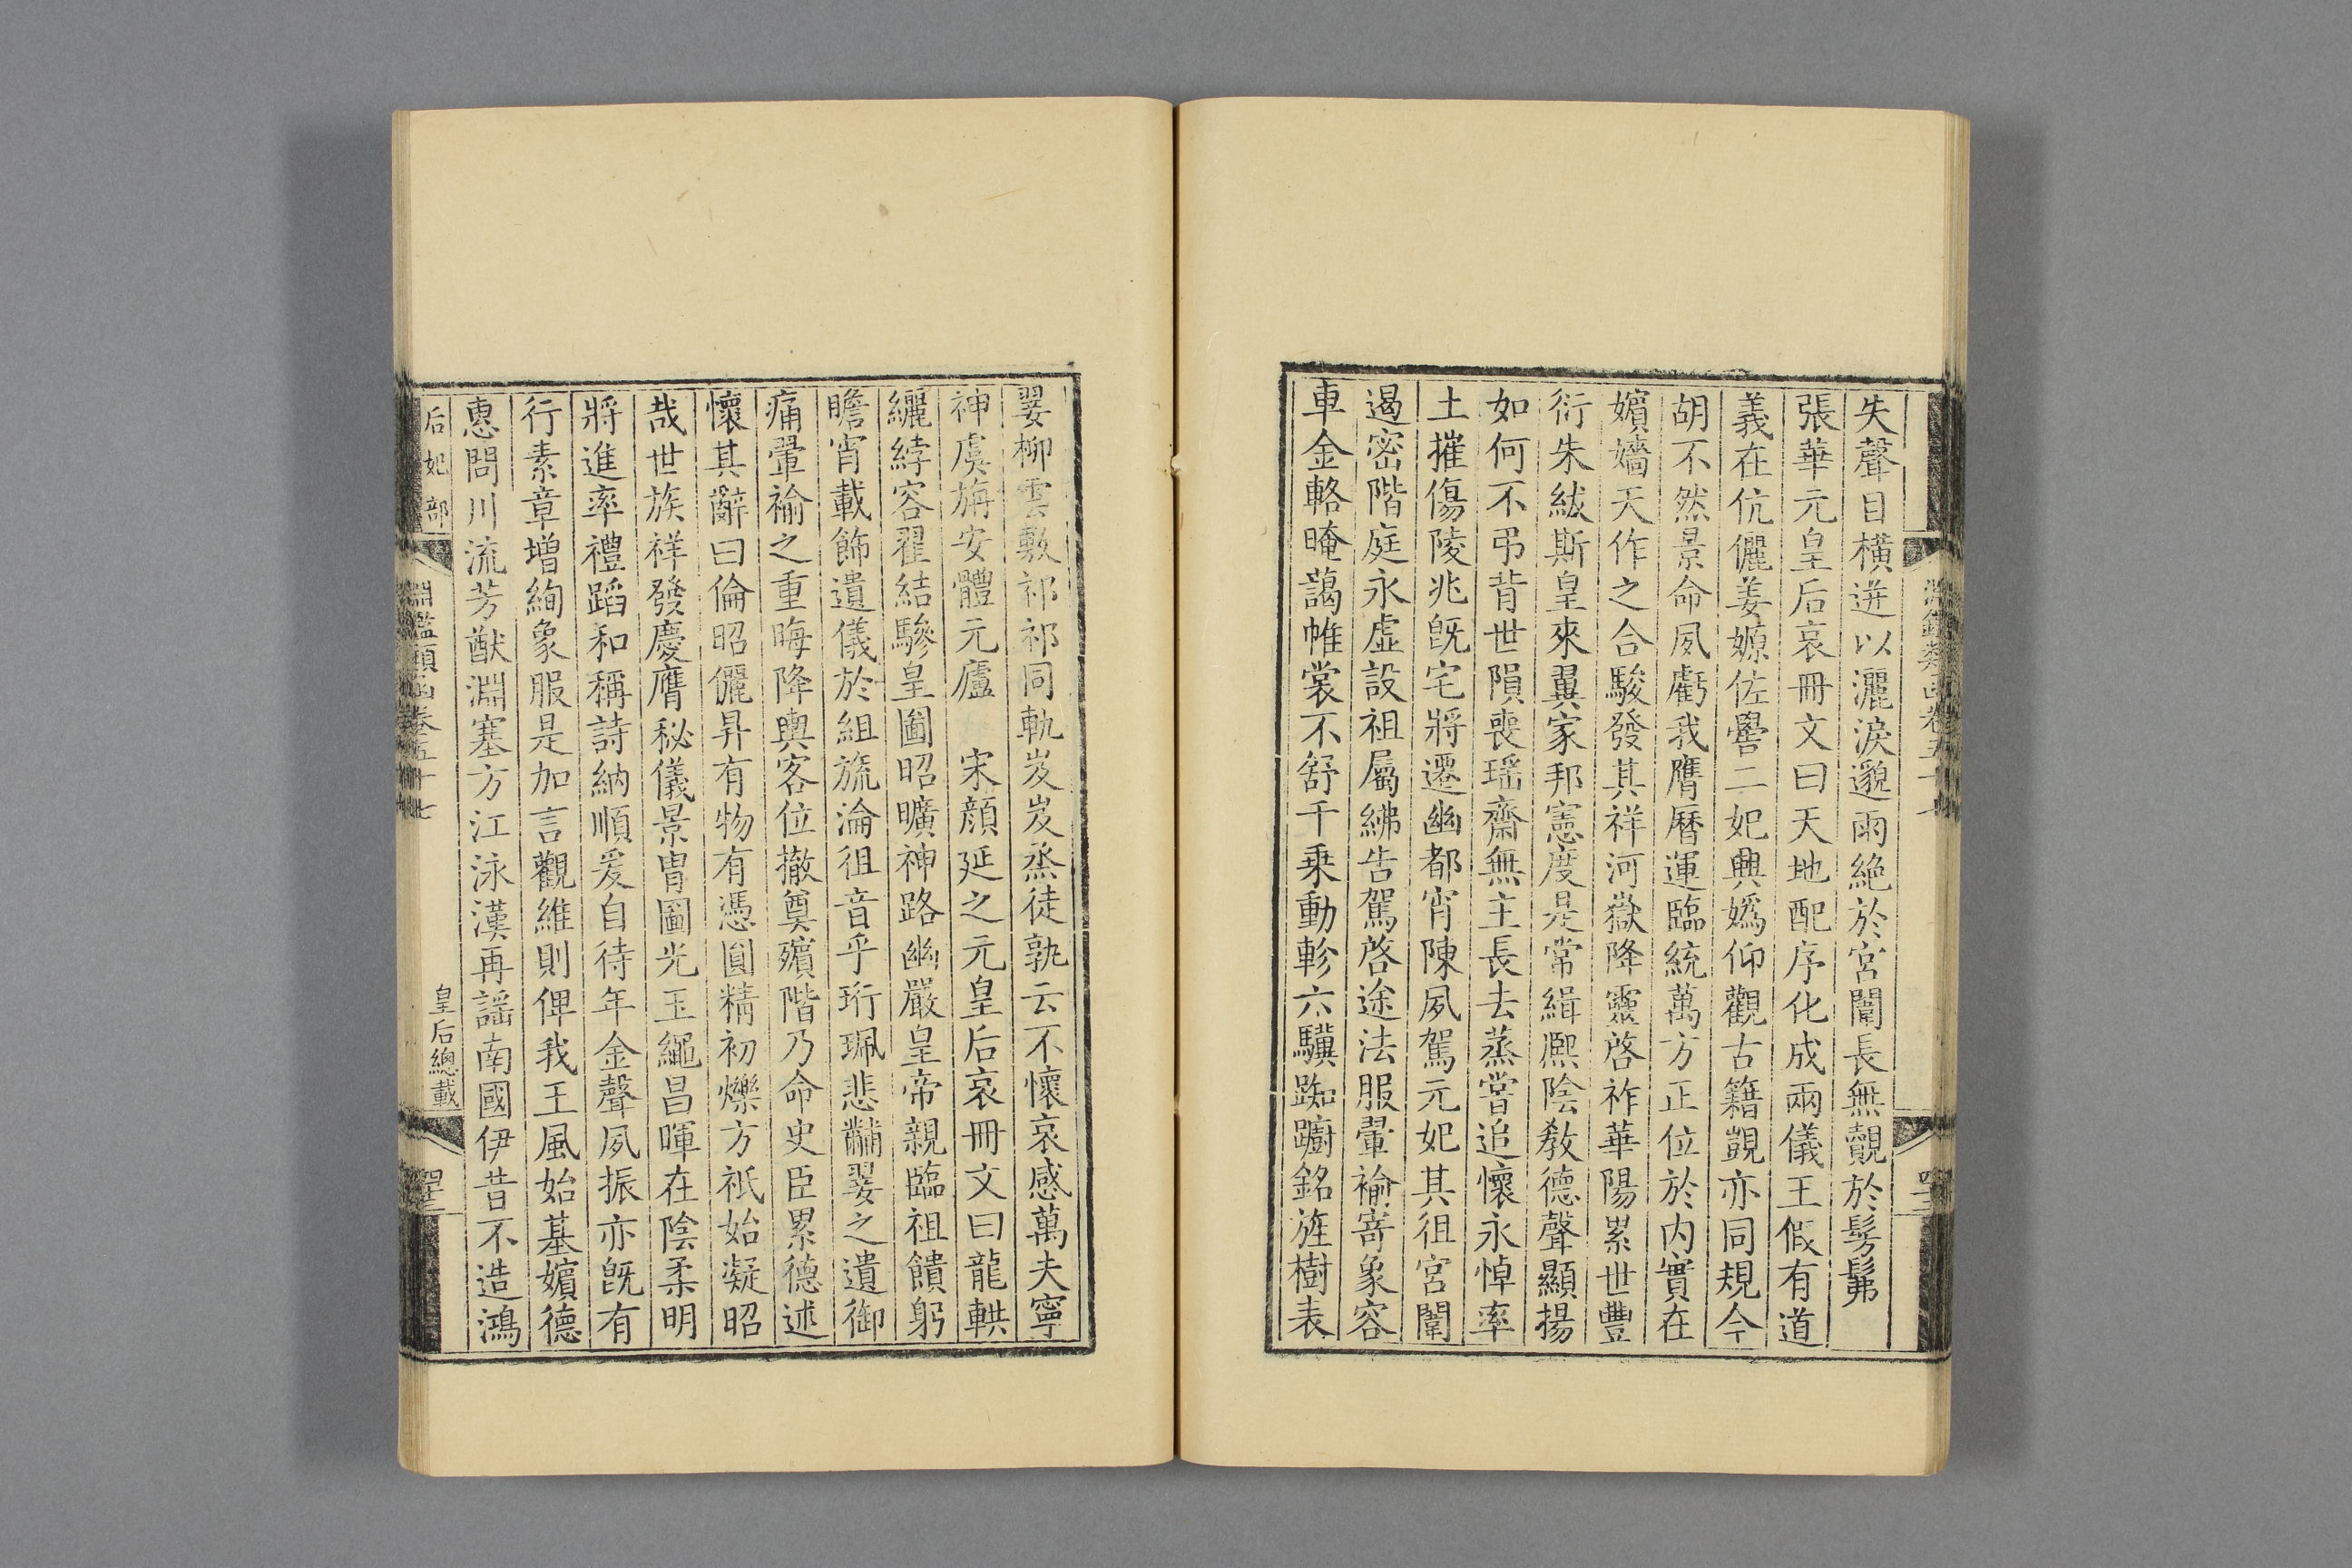 失聲目橫迸以灑淚邈雨絶於宮闈長無覿於髣髴
張華元皇后哀冊文曰天地配序化成兩儀王假有道
義在伉儷姜嫄佐嚳二妃興嬀仰觀古籍覬亦同規今
胡不然景命夙虧我膺曆運臨統萬方正位於内實在
嬪嬙天作之合駿發其祥河嶽降靈啓祚華陽累世豐
衍朱紱斯皇來翼家邦憲度是常緝熙陰敎德聲顯揚
如何不弔背世隕喪瑶齋無主長去蒸嘗追懷永悼率
土摧傷陵兆旣宅將遷幽都宵陳夙駕元妃其徂宮闈
遏密階庭永虚設祖屬紼告駕啓途法服翬褕寄象容
車金輅晻藹帷裳不舒千乘動軫六驥踟躕銘旌樹表
翣柳雲敷祁祁同軌岌岌烝徒孰云不懷哀感萬夫寧
神虞旃安體元廬　宋顏延之元皇后哀冊文曰龍輁
纚綍容翟結驂皇圖昭曠神路幽嚴皇帝親臨祖饋躬
瞻宵載飾遺儀於組旒淪徂音乎珩珮悲黼翣之遺御
痛翬褕之重晦降輿客位撤奠殯階乃命史臣累德述
懷其辭曰倫昭儷昇有物有憑圓精初爍方祇始凝昭
哉世族祥發慶膺秘儀景胄圖光玉繩昌暉在陰柔明
將進率禮蹈和稱詩納順爰自待年金聲夙振亦旣有
行素章增絢象服是加言觀維則俾我王風始基嬪德
惠問川流芳猷淵塞方江泳漢再謠南國伊昔不造鴻
后妃部　淵鑑類函卷五十七　皇后總載